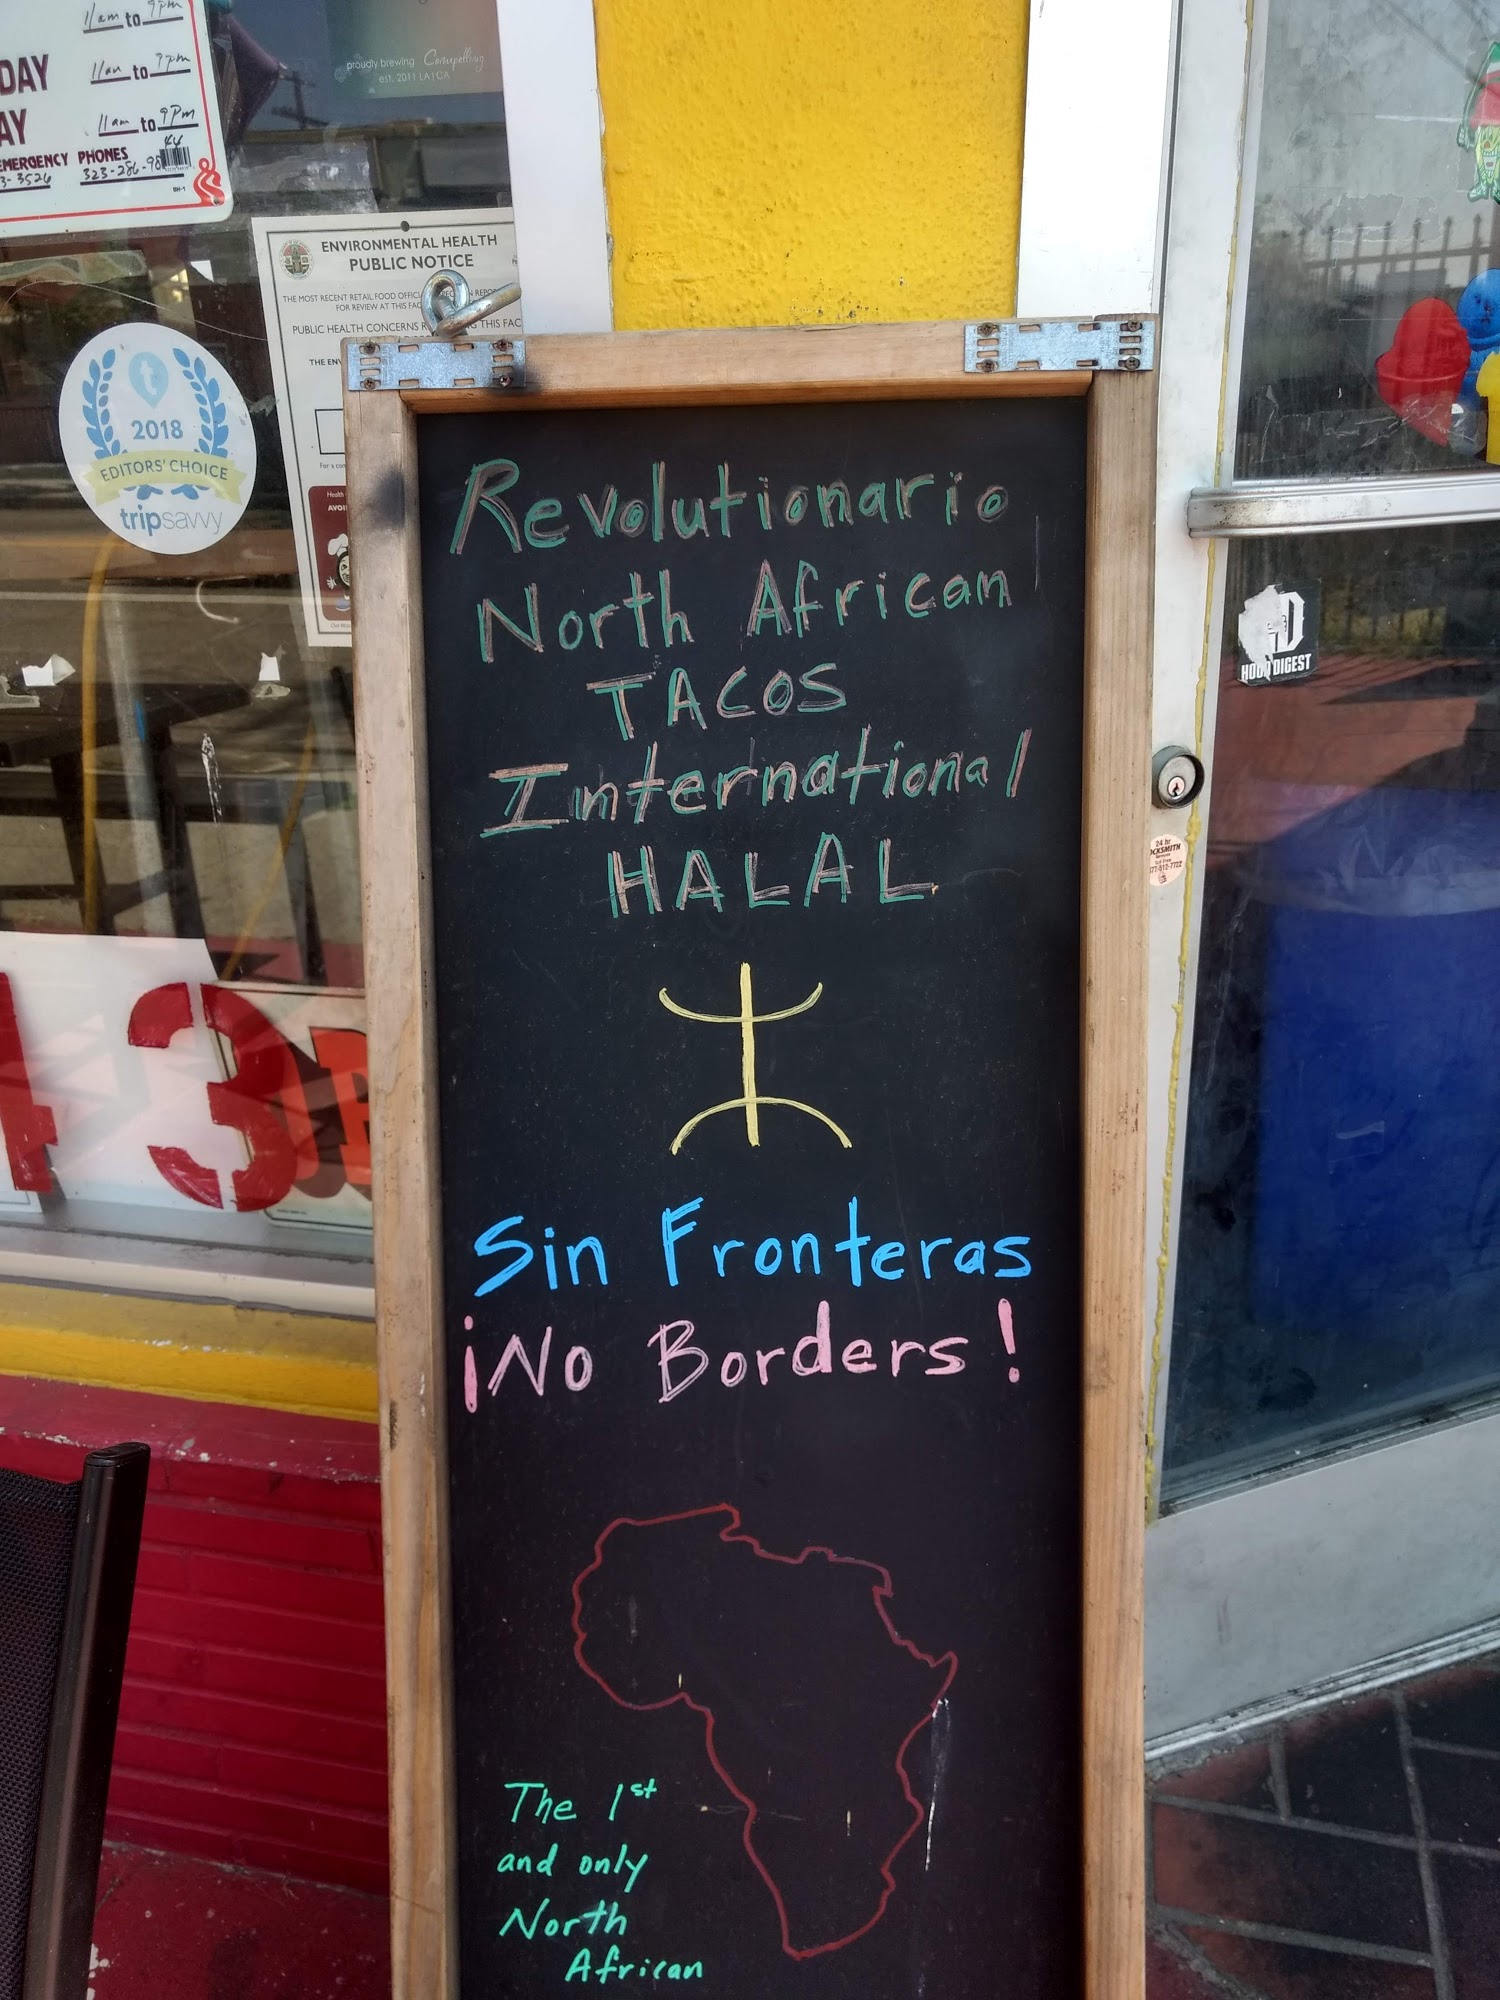 11am to 9pm
DAY 11am to 9pm
AY 11am to 9pm
EMERGENCY PHONES
3-3526 323-286-98
44
BH-1
proudly brewing Compelling
est. 2011 LA | CA
ENVIRONMENTAL HEALTH
PUBLIC NOTICE
THE MOST RECENT RETAIL FOOD
FOR REVIEW AT THIS
PUBLIC HEALTH CONCERNS THIS
2018
EDITORS' CHOICE
tripsavvy
Revolutionario
North African
TACOS
International
HALAL
Sin Fronteras
¡No Borders!
The 1st
and only
North
African
3
DIGEST
24 hr